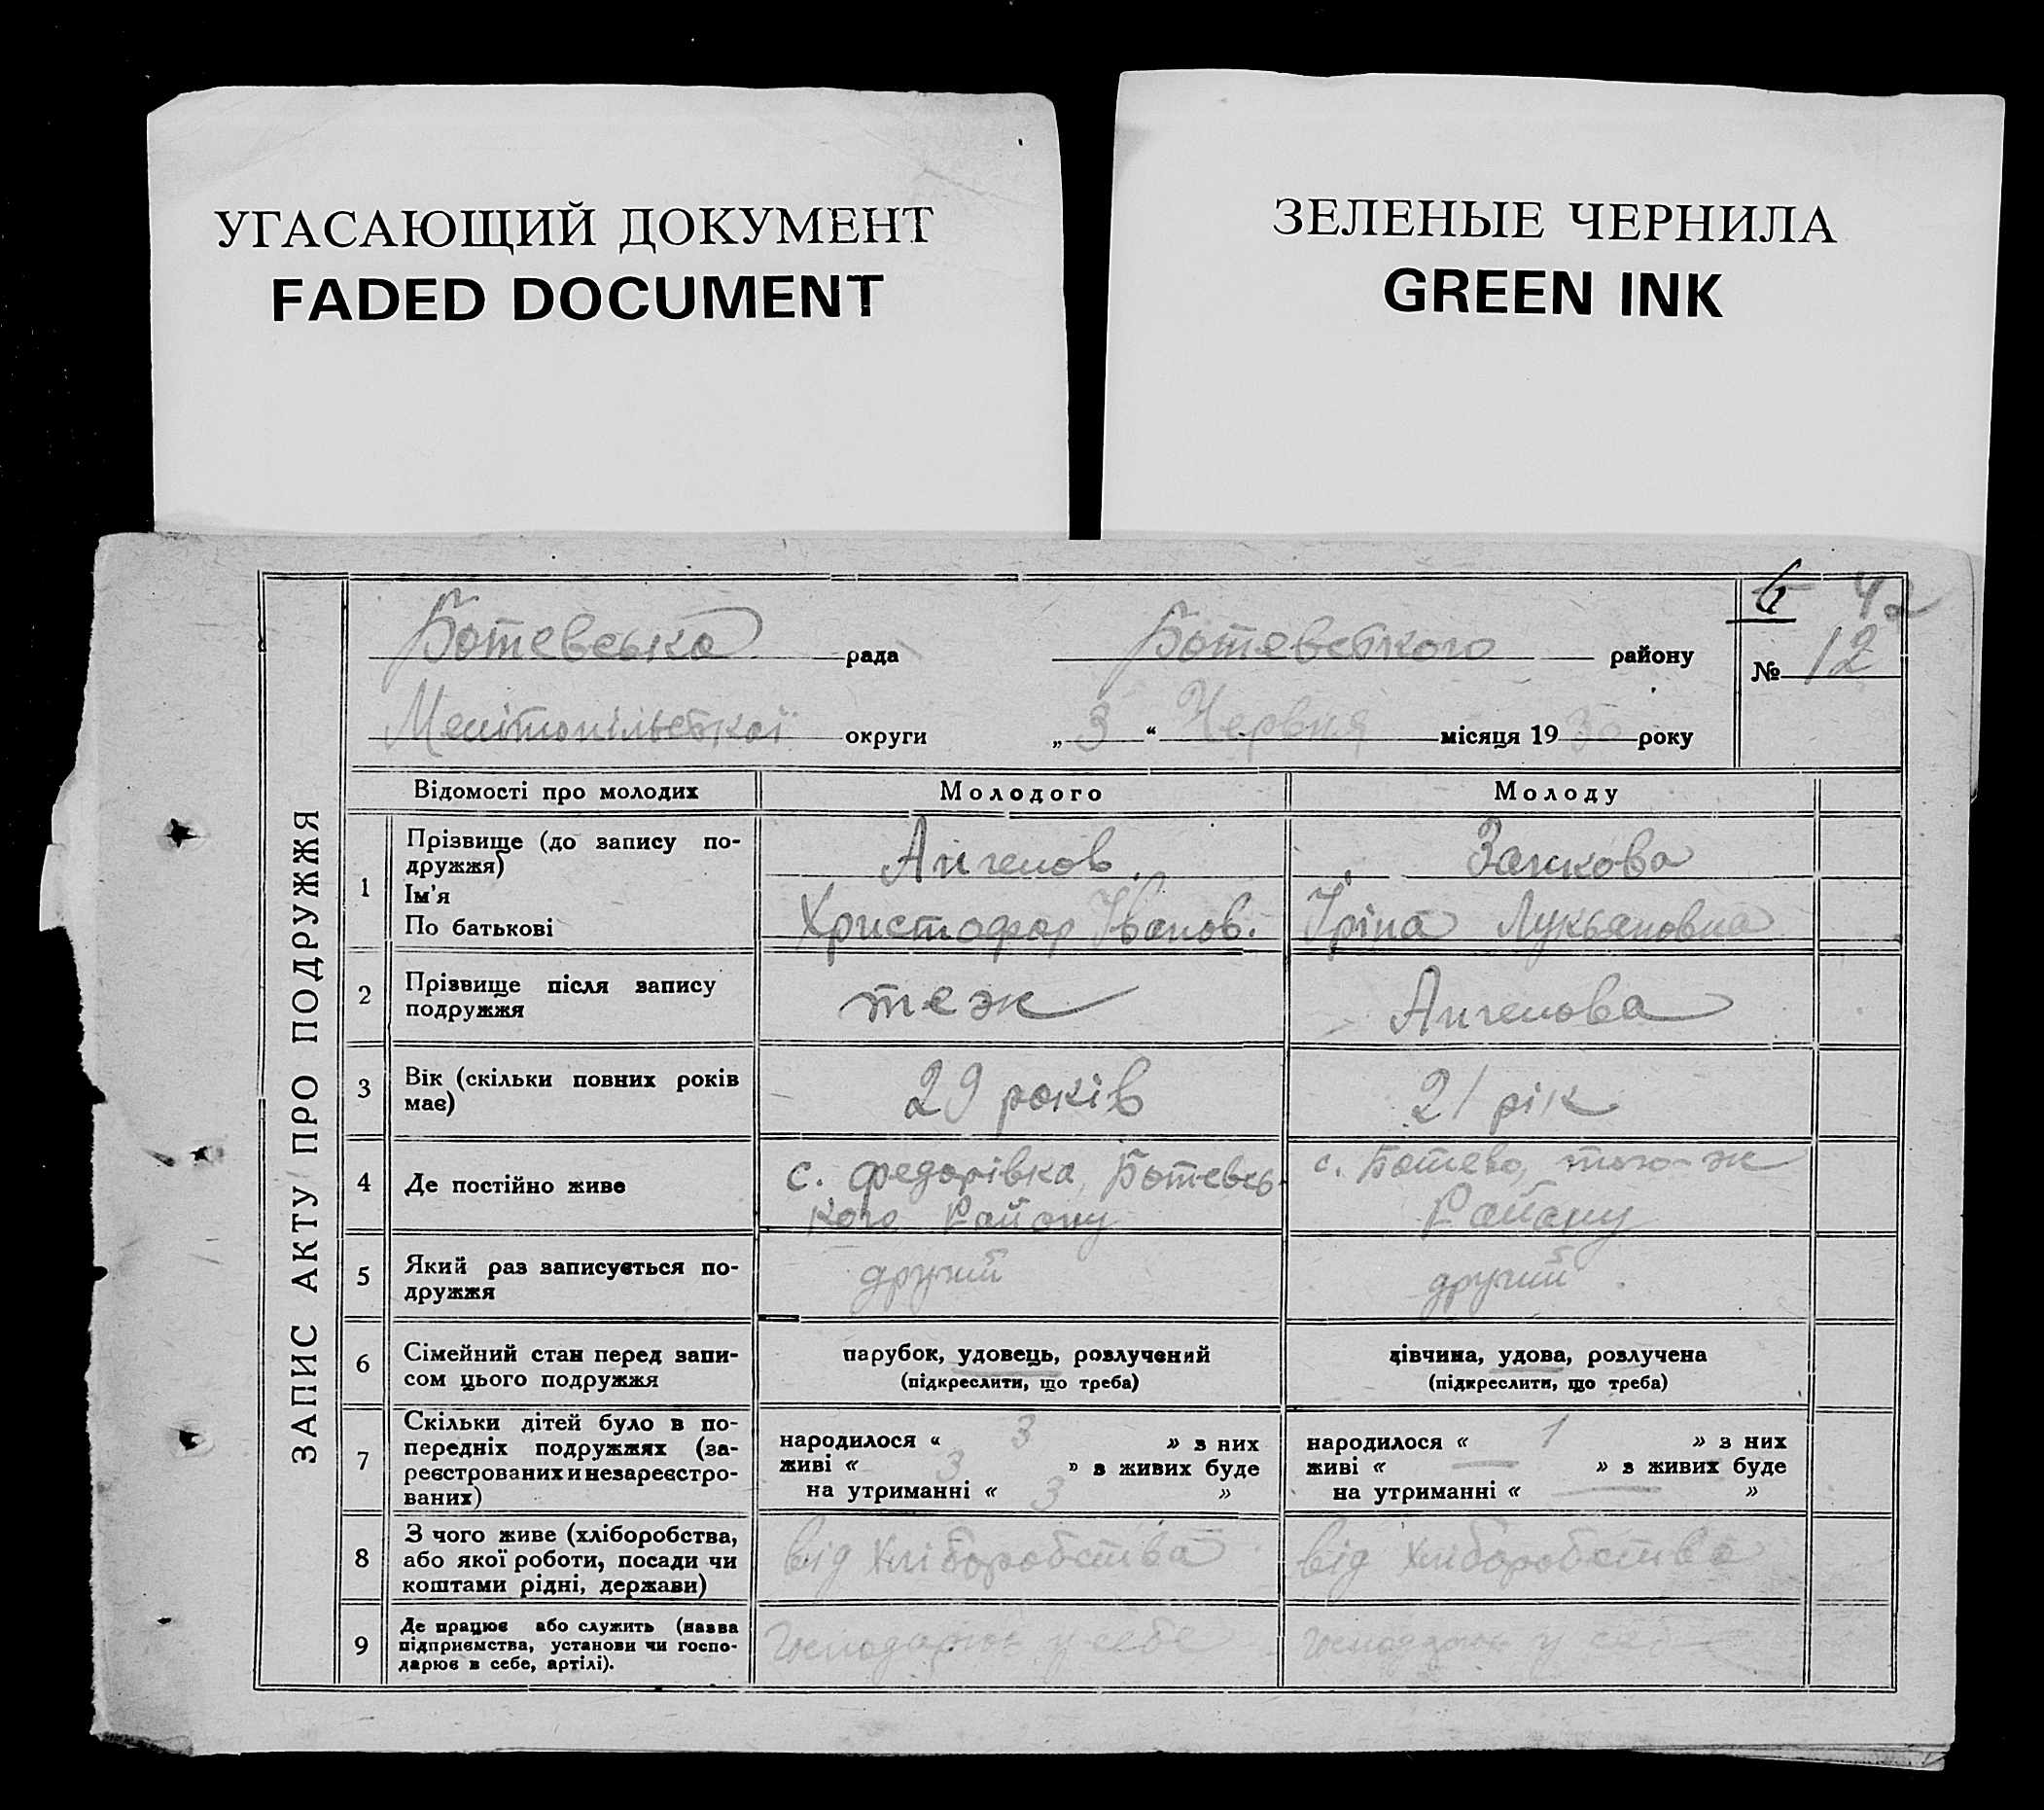 УГАСАЮЩИЙ ДОКУМЕНТ
FADED DOCUMENT
ЗЕЛЕНЫЕ ЧЕРНИЛА
GREEN INK
ЗАПИС АКТУ ПРО ПОДРУЖЖЯ
Ботевська рада Ботевського району
№ 12
Мелітопільської округи „3“ Червня місяця 1930 року
Відомості про молодих
Молодого
Молоду
1
Прізвище (до запису по-
дружжя)
Ім'я
По батькові
Ангелов
Христофор Іванов.
Занкова
Іріна Лукьяновна
2
Прізвище після запису
подружжя
теж
Ангелова
3
Вік (скільки повних років
має)
29 років
21 рік
4
Де постійно живе
с. Федорівка, Ботевсь-
кого Району
с. Ботево, того-ж
Району
5
Який раз записується по-
дружжя
другий
другий
6
Сімейний стан перед запи-
сом цього подружжя
парубок, удовець, розлучений
(підкреслити, що треба)
дівчина, удова, розлучена
(підкреслити, що треба)
7
Скільки дітей було в по-
передніх подружжях (за-
реєстрованих и незареєстро-
ваних)
народилося « 3 » з них
живі « 3 » з живих буде
на утриманні « 3 »
народилося « 1 » з них
живі « — » з живих буде
на утриманні « — »
8
З чого живе (хліборобства,
або якої роботи, посади чи
коштами рідні, держави)
від хліборобства
від хліборобства
9
Де працює або служить (назва
підприємства, установи чи госпо-
дарює в себе, артілі).
Господарює у себе
Господарює у себе